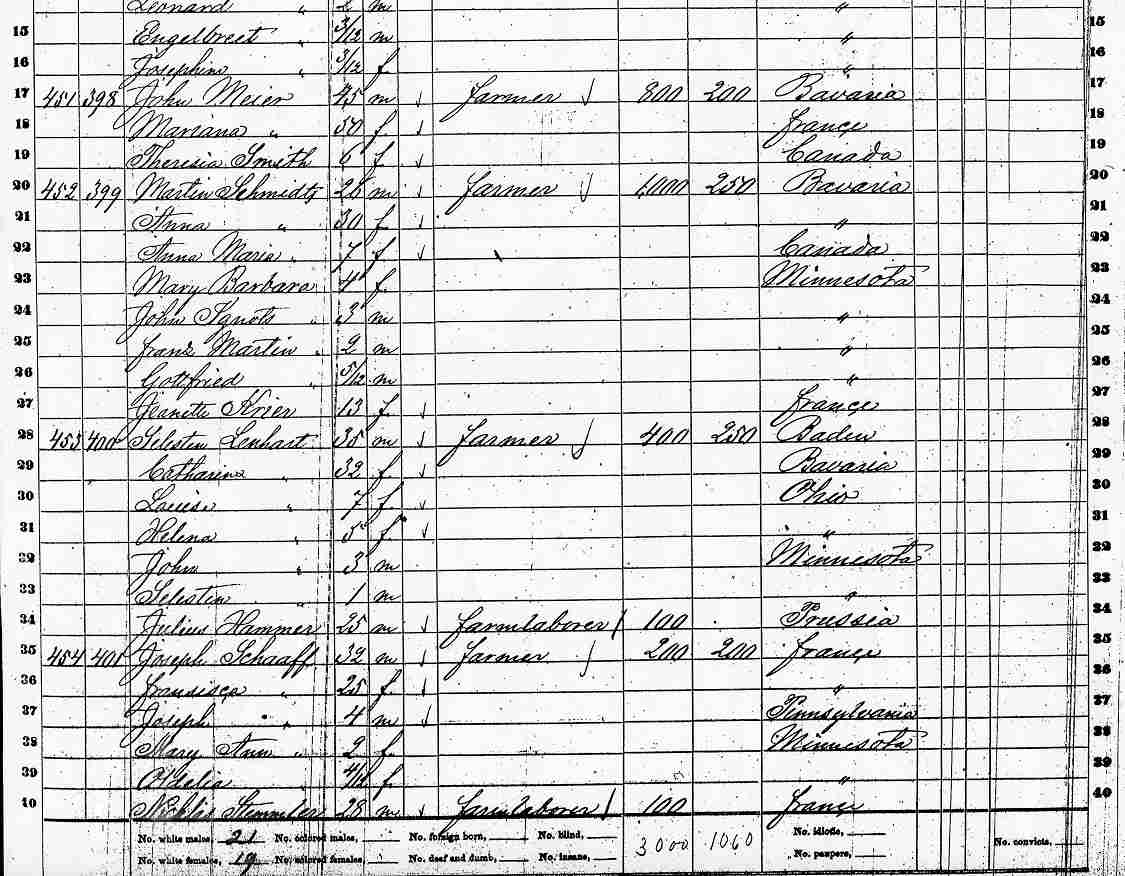 Leonard " 2 m "
15 Engelbreet " 3/12 m " 15
16 Josephine " 3/12 f " 16
17 451 398 John Meier 45 m farmer 800 200 Bavaria 17
18 Mariana " 50 f france 18
19 Theresia Smith 6 f Canada 19
20 452 399 Martin Schmidtz 28 m farmer 1,000 250 Bavaria 20
21 Anna " 30 f " 21
22 Anna Maria " 7 f Canada 22
23 Mary Barbara 4 f Minnesota 23
24 John Ignots " 3 m " 24
25 franz Martin " 2 m " 25
26 Gottfried " 5/12 m " 26
27 Jeanette Krier 13 f france 27
28 453 400 Selestin Lenhart 35 m farmer 400 250 Baden 28
29 Catharina " 32 f Bavaria 29
30 Louise " 7 f Ohio 30
31 Helena " 5 f " 31
32 John " 3 m Minnesota 32
33 Selestin " 1 m " 33
34 Julius Hammer 25 m farmlaborer 100 Prussia 34
35 454 401 Joseph Schaaff 32 m farmer 200 200 france 35
36 fransisca " 25 f " 36
37 Joseph " 4 m Pennsylvania 37
38 Mary Ann " 2 f Minnesota 38
39 Ordelia " 4/12 f " 39
40 Stemmler 28 m farmlaborer 100 france 40
No. white males, 21 No. colored males, No. foreign born, No. blind, 3000 1060 No. idiotic, No. convicts,
No. white females, 19 No. colored females, No. deaf and dumb, No. insane, No. paupers,